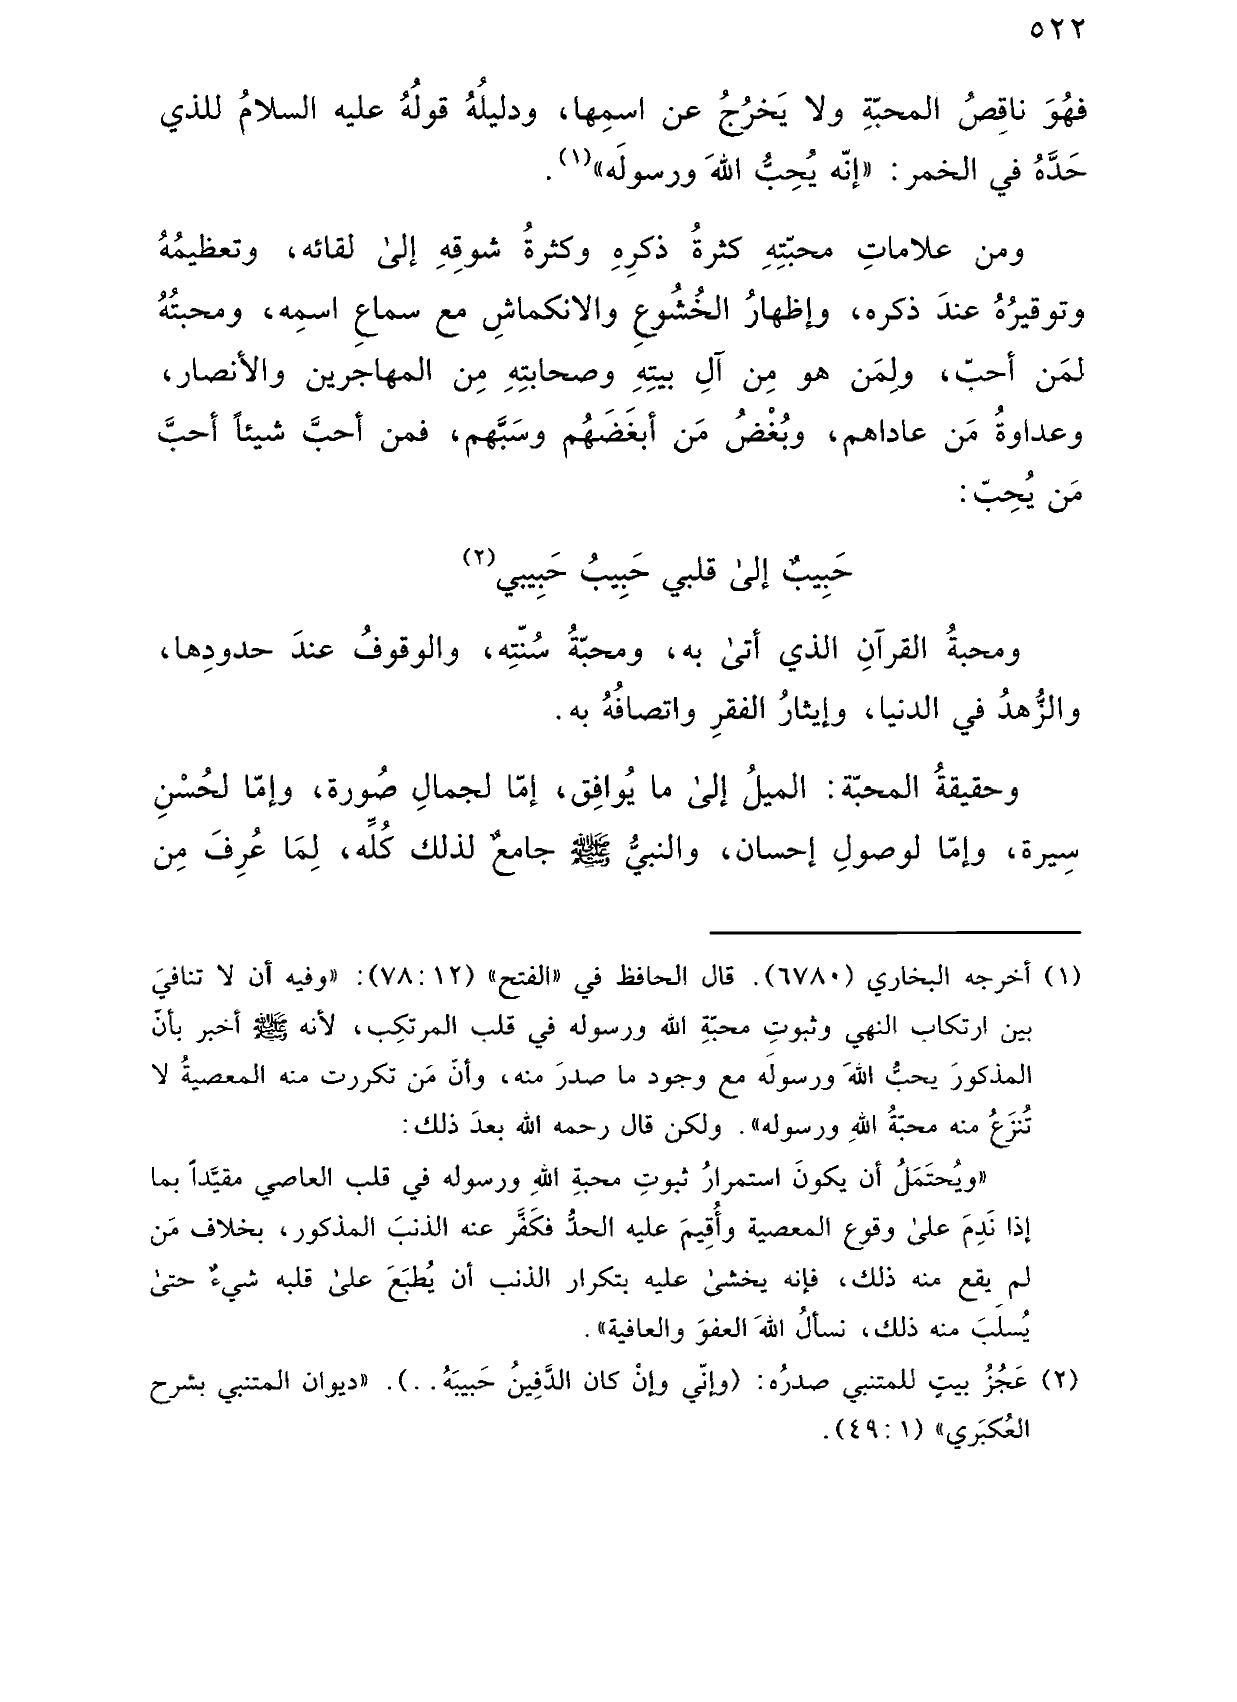 ٥٢٢
فهُوَ ناقِصُ المحبّةِ ولا يَخرُجُ عن اسمِها، ودليلُهُ قولُهُ عليه السلامُ للذي
حَدَّهُ في الخمر: «إنّه يُحِبُّ اللهَ ورسولَه»(١).
ومن علاماتِ محبّتِهِ كثرةُ ذكرِهِ وكثرةُ شوقِهِ إلىٰ لقائه، وتعظيمُهُ
وتوقيرُهُ عندَ ذكره، وإظهارُ الخُشُوعِ والانكماشِ مع سماعِ اسمِه، ومحبتُهُ
لمَن أحبّ، ولِمَن هو مِن آلِ بيتِهِ وصحابتِهِ مِن المهاجرين والأنصار،
وعداوةُ مَن عاداهم، وبُغْضُ مَن أبغَضَهُم وسَبَّهم، فمن أحبَّ شيئاً أحبَّ
مَن يُحِبّ:
حَبِيبٌ إلىٰ قلبي حَبِيبُ حَبِيبي(٢)
ومحبةُ القرآنِ الذي أتىٰ به، ومحبّةُ سُنّتِه، والوقوفُ عندَ حدودِها،
والزُّهدُ في الدنيا، وإيثارُ الفقرِ واتصافُهُ به.
وحقيقةُ المحبّة: الميلُ إلىٰ ما يُوافِق، إمّا لجمالِ صُورة، وإمّا لحُسْنِ
سِيرة، وإمّا لوصولِ إحسان، والنبيُّ ﷺ جامعٌ لذلك كُلِّه، لِمَا عُرِفَ مِن
(١) أخرجه البخاري (٦٧٨٠). قال الحافظ في «الفتح» (١٢: ٧٨): «وفيه أن لا تنافيَ
بين ارتكاب النهي وثبوتِ محبّةِ الله ورسوله في قلب المرتكِب، لأنه ﷺ أخبر بأنّ
المذكورَ يحبُّ اللهَ ورسولَه مع وجود ما صدرَ منه، وأنّ مَن تكررت منه المعصيةُ لا
تُنزَعُ منه محبّةُ اللهِ ورسوله». ولكن قال رحمه الله بعدَ ذلك:
«ويُحتَمَلُ أن يكونَ استمرارُ ثبوتِ محبةِ اللهِ ورسوله في قلب العاصي مقيَّداً بما
إذا نَدِمَ علىٰ وقوع المعصية وأُقِيمَ عليه الحدُّ فكَفَّر عنه الذنبَ المذكور، بخلاف مَن
لم يقع منه ذلك، فإنه يخشىٰ عليه بتكرار الذنب أن يُطبَعَ علىٰ قلبه شيءٌ حتىٰ
يُسلَبَ منه ذلك، نسألُ اللهَ العفوَ والعافية».
(٢) عَجُزُ بيتٍ للمتنبي صدرُه: (وإنّي وإنْ كان الدَّفِينُ حَبيبَهُ...). «ديوان المتنبي بشرح
العُكبَري» (١: ٤٩).